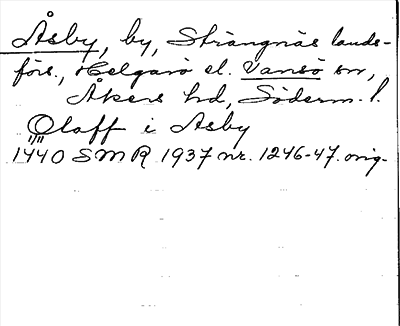 Åsby, by, Strängnäs lands-
förs., Helgarö el. Vansö sn,
Åkers hd, Söderm. l.
Olaff i Asby
1440 SMR 1937 nr. 1246-47. orig.